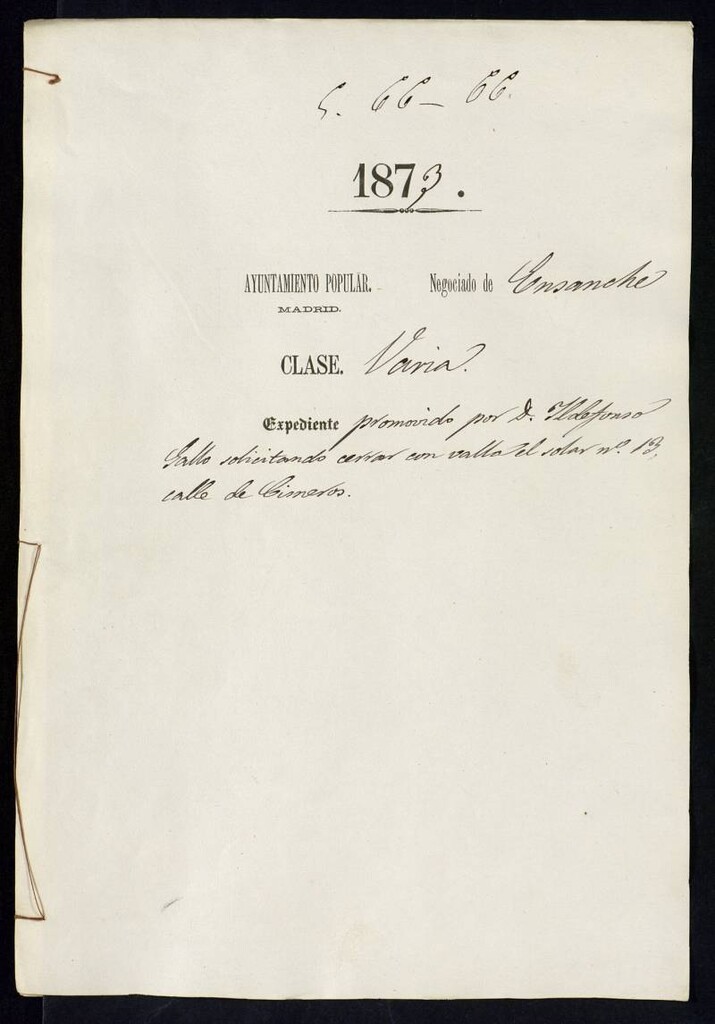 5. 66 - 66.
1873.
AYUNTAMIENTO POPULAR. Negociado de Ensanche
MADRID.
CLASE. Varia.
Expediente promovido por D. Ildefonso
Gallo solicitando cerrar con valla el solar nº. 13,
calle de Cisneros.